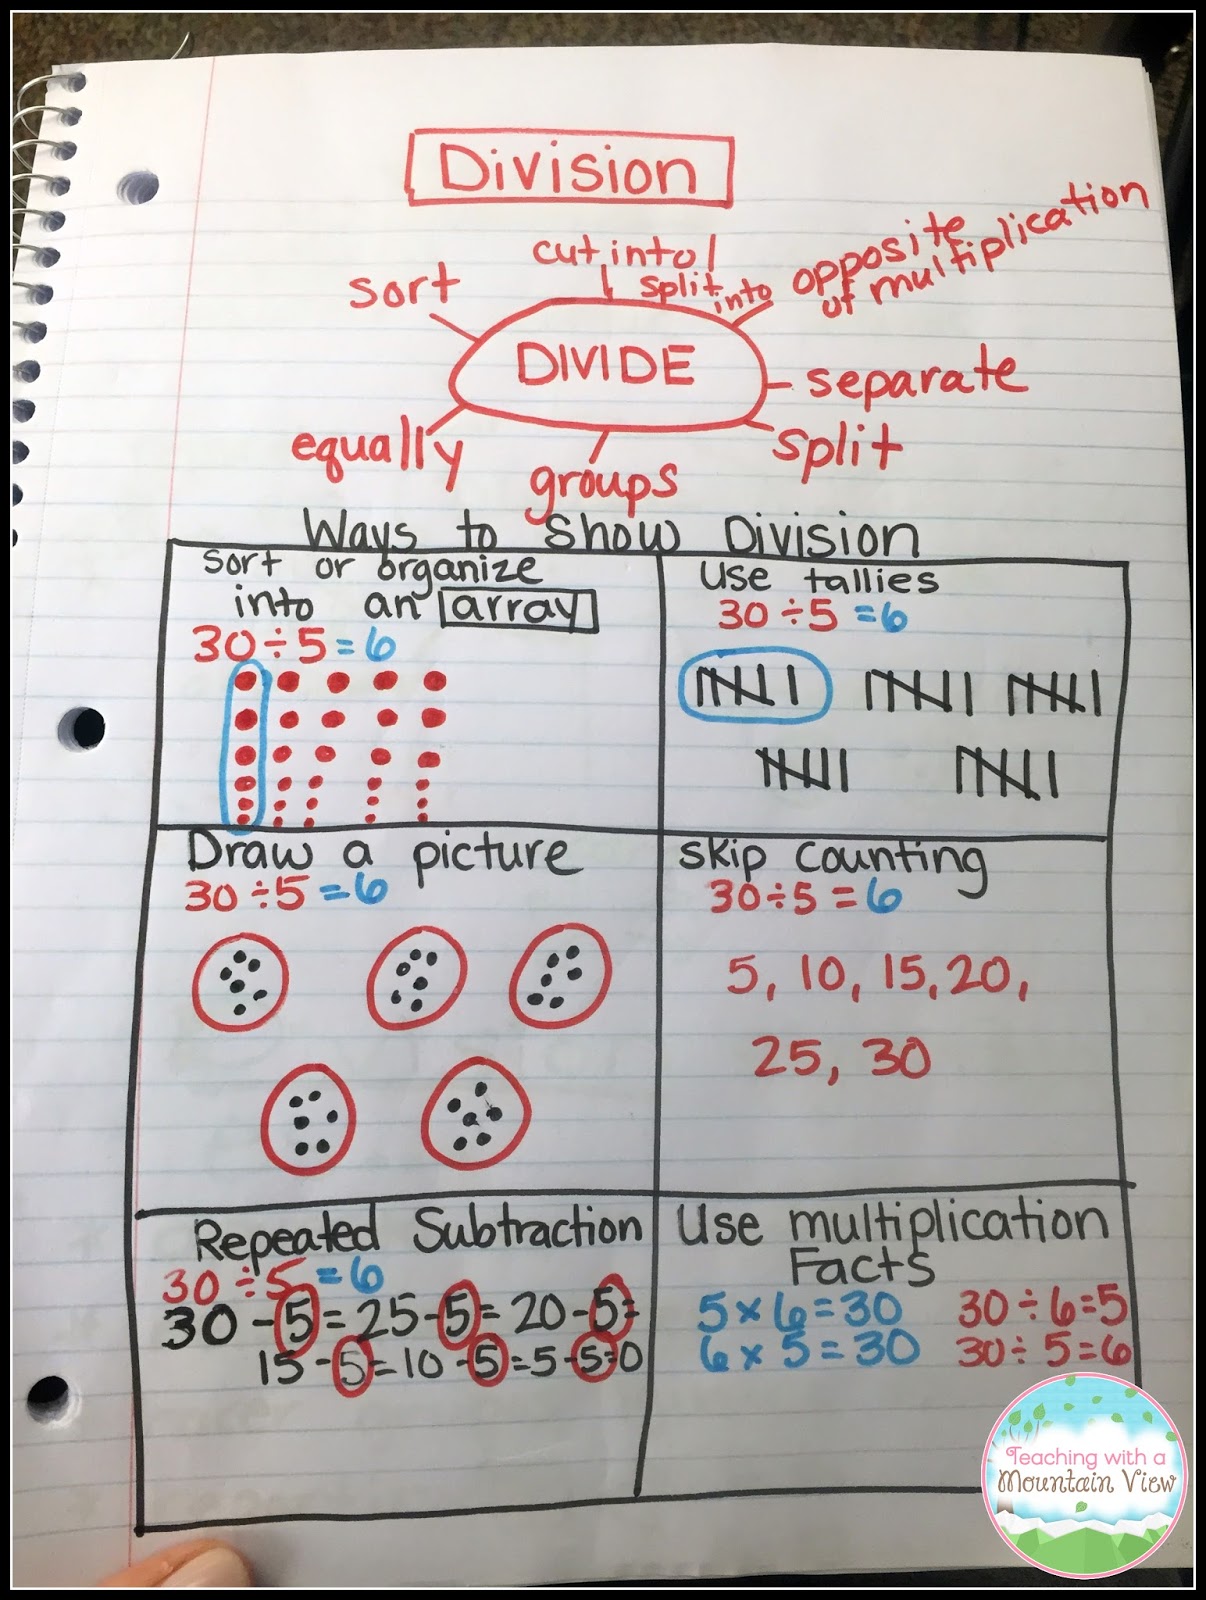 Division
cut into
split
into
opposite
of multiplication
sort
DIVIDE
separate
equally
split
groups
Ways to Show Division
Sort or organize
into an array
30÷5=6
Use tallies
30÷5=6
Draw a picture
30÷5=6
Skip Counting
30÷5=6
5, 10, 15, 20,
25, 30
Repeated Subtraction
30÷5=6
30-5=25-5=20-5=
15-5=10-5=5-5=0
Use multiplication
Facts
5×6=30 30÷6=5
6×5=30 30÷5=6
Teaching with a
Mountain View